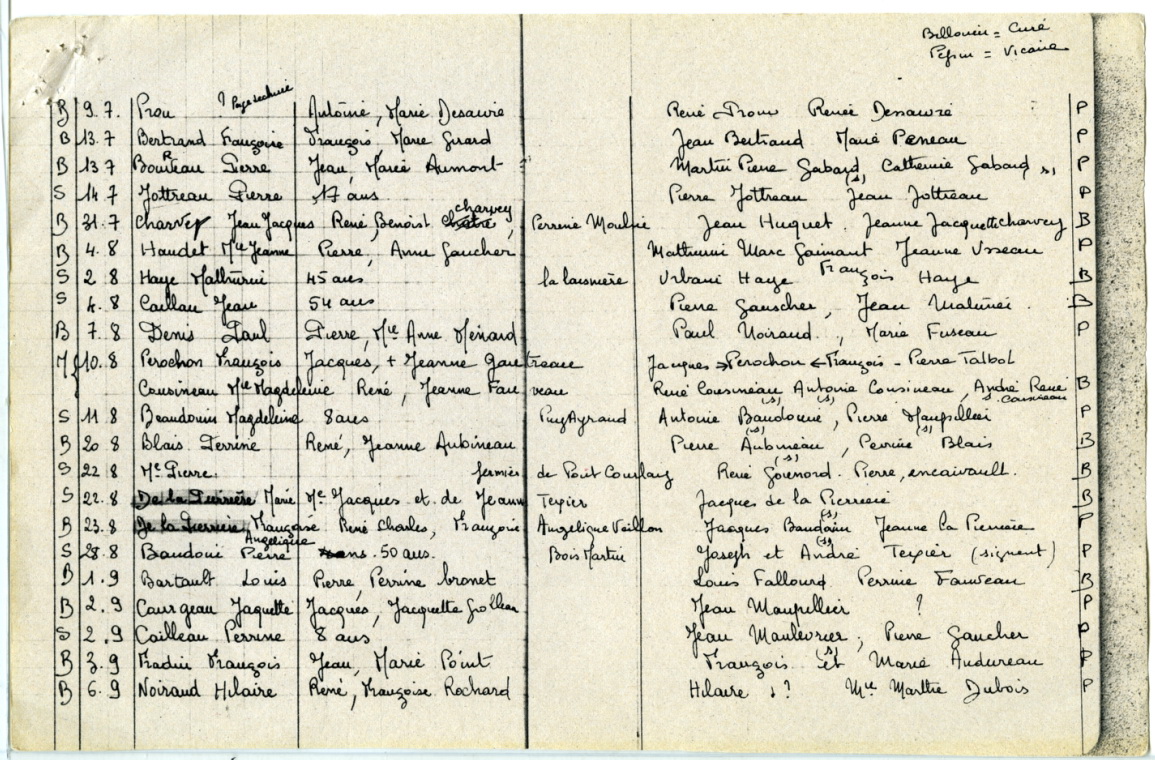 Billouin = Curé
Pépin = Vicaire
B 9.7. Prou ? Antoine, Marie Desauvié René Proux Renée Dessauvié P
B 13.7 Bertrand Françoise François Marie Girard Jean Bertrand Marie Peneau P
B 13.7 Bouteau Pierre Jean, Marie Aumont Martin Pierre Gabard, Catherine Gabard (s) P
S 14.7 Jottreau Pierre 17 ans Pierre Jottreau Jean Jottreau P
B 31.7 Charvey Jean Jacques René, Benoist charvey, Perrine Moulin Jean Huguet. Jeanne Jacquette charvey B
B 4.8 Haudet Mie Jeanne Pierre, Anne Gaucher Mathurin Marc Jeanne Usseau P
S 2.8 Haye Mathurin 45 ans Urbain Haye François Haye B
S 4.8 Caillau Jean 54 ans Pierre Gauscher, Jean B
B 7.8 Denis Paul Pierre, Mie Anne Ménard Paul Noiraud, Marie Fuseau P
M 10.8 Perochon François Jacques, + Jeanne Gautreau Jacques → Perochon ← François - Pierre Talbot
Cousineau Mie Magdeleine René, Jeanne Fauveau René Cousineau, Antoine Cousineau, André René Cousineau B
S 11.8 Beaudouin Magdeleine 8 ans Puy Ayraud Antoine Baudouin, Pierre Maupillier P
B 20.8 Blais Perrine René, Jeanne Aubineau Pierre Aubineau, Perrine Blais B
S 22.8 Me Pierre fermier de Pont Courlay René Pierre, B
S 22.8 De la Perrière Marie Me Jacques et de Jeanne Texier Jacques de la Perrière B
B 23.8 De la Perrière Françoise Angélique René Charles, Françoise Angelique Veillon Jacques Baudouin Jeanne la Perrière P
S 28.8 Baudoui Pierre 50 ans. Bois Martin Joseph et André Texier (signent) P
B 1.9 Bartault Louis Pierre, Perrine bronet Louis Fallourd Perrine Fauveau B
B 2.9 Courgeau Jaquette Jacques, Jacquette Jean Maupillier ? P
S 2.9 Cailleau Perrine 8 ans Jean Maulevrier, Pierre Gaucher P
B 3.9 Fradin François Jean, Marie Point François (s) et Marie Audureau P
B 6.9 Noiraud Hilaire René, Françoise Rochard Hilaire ? Mie Marthe Dubois P